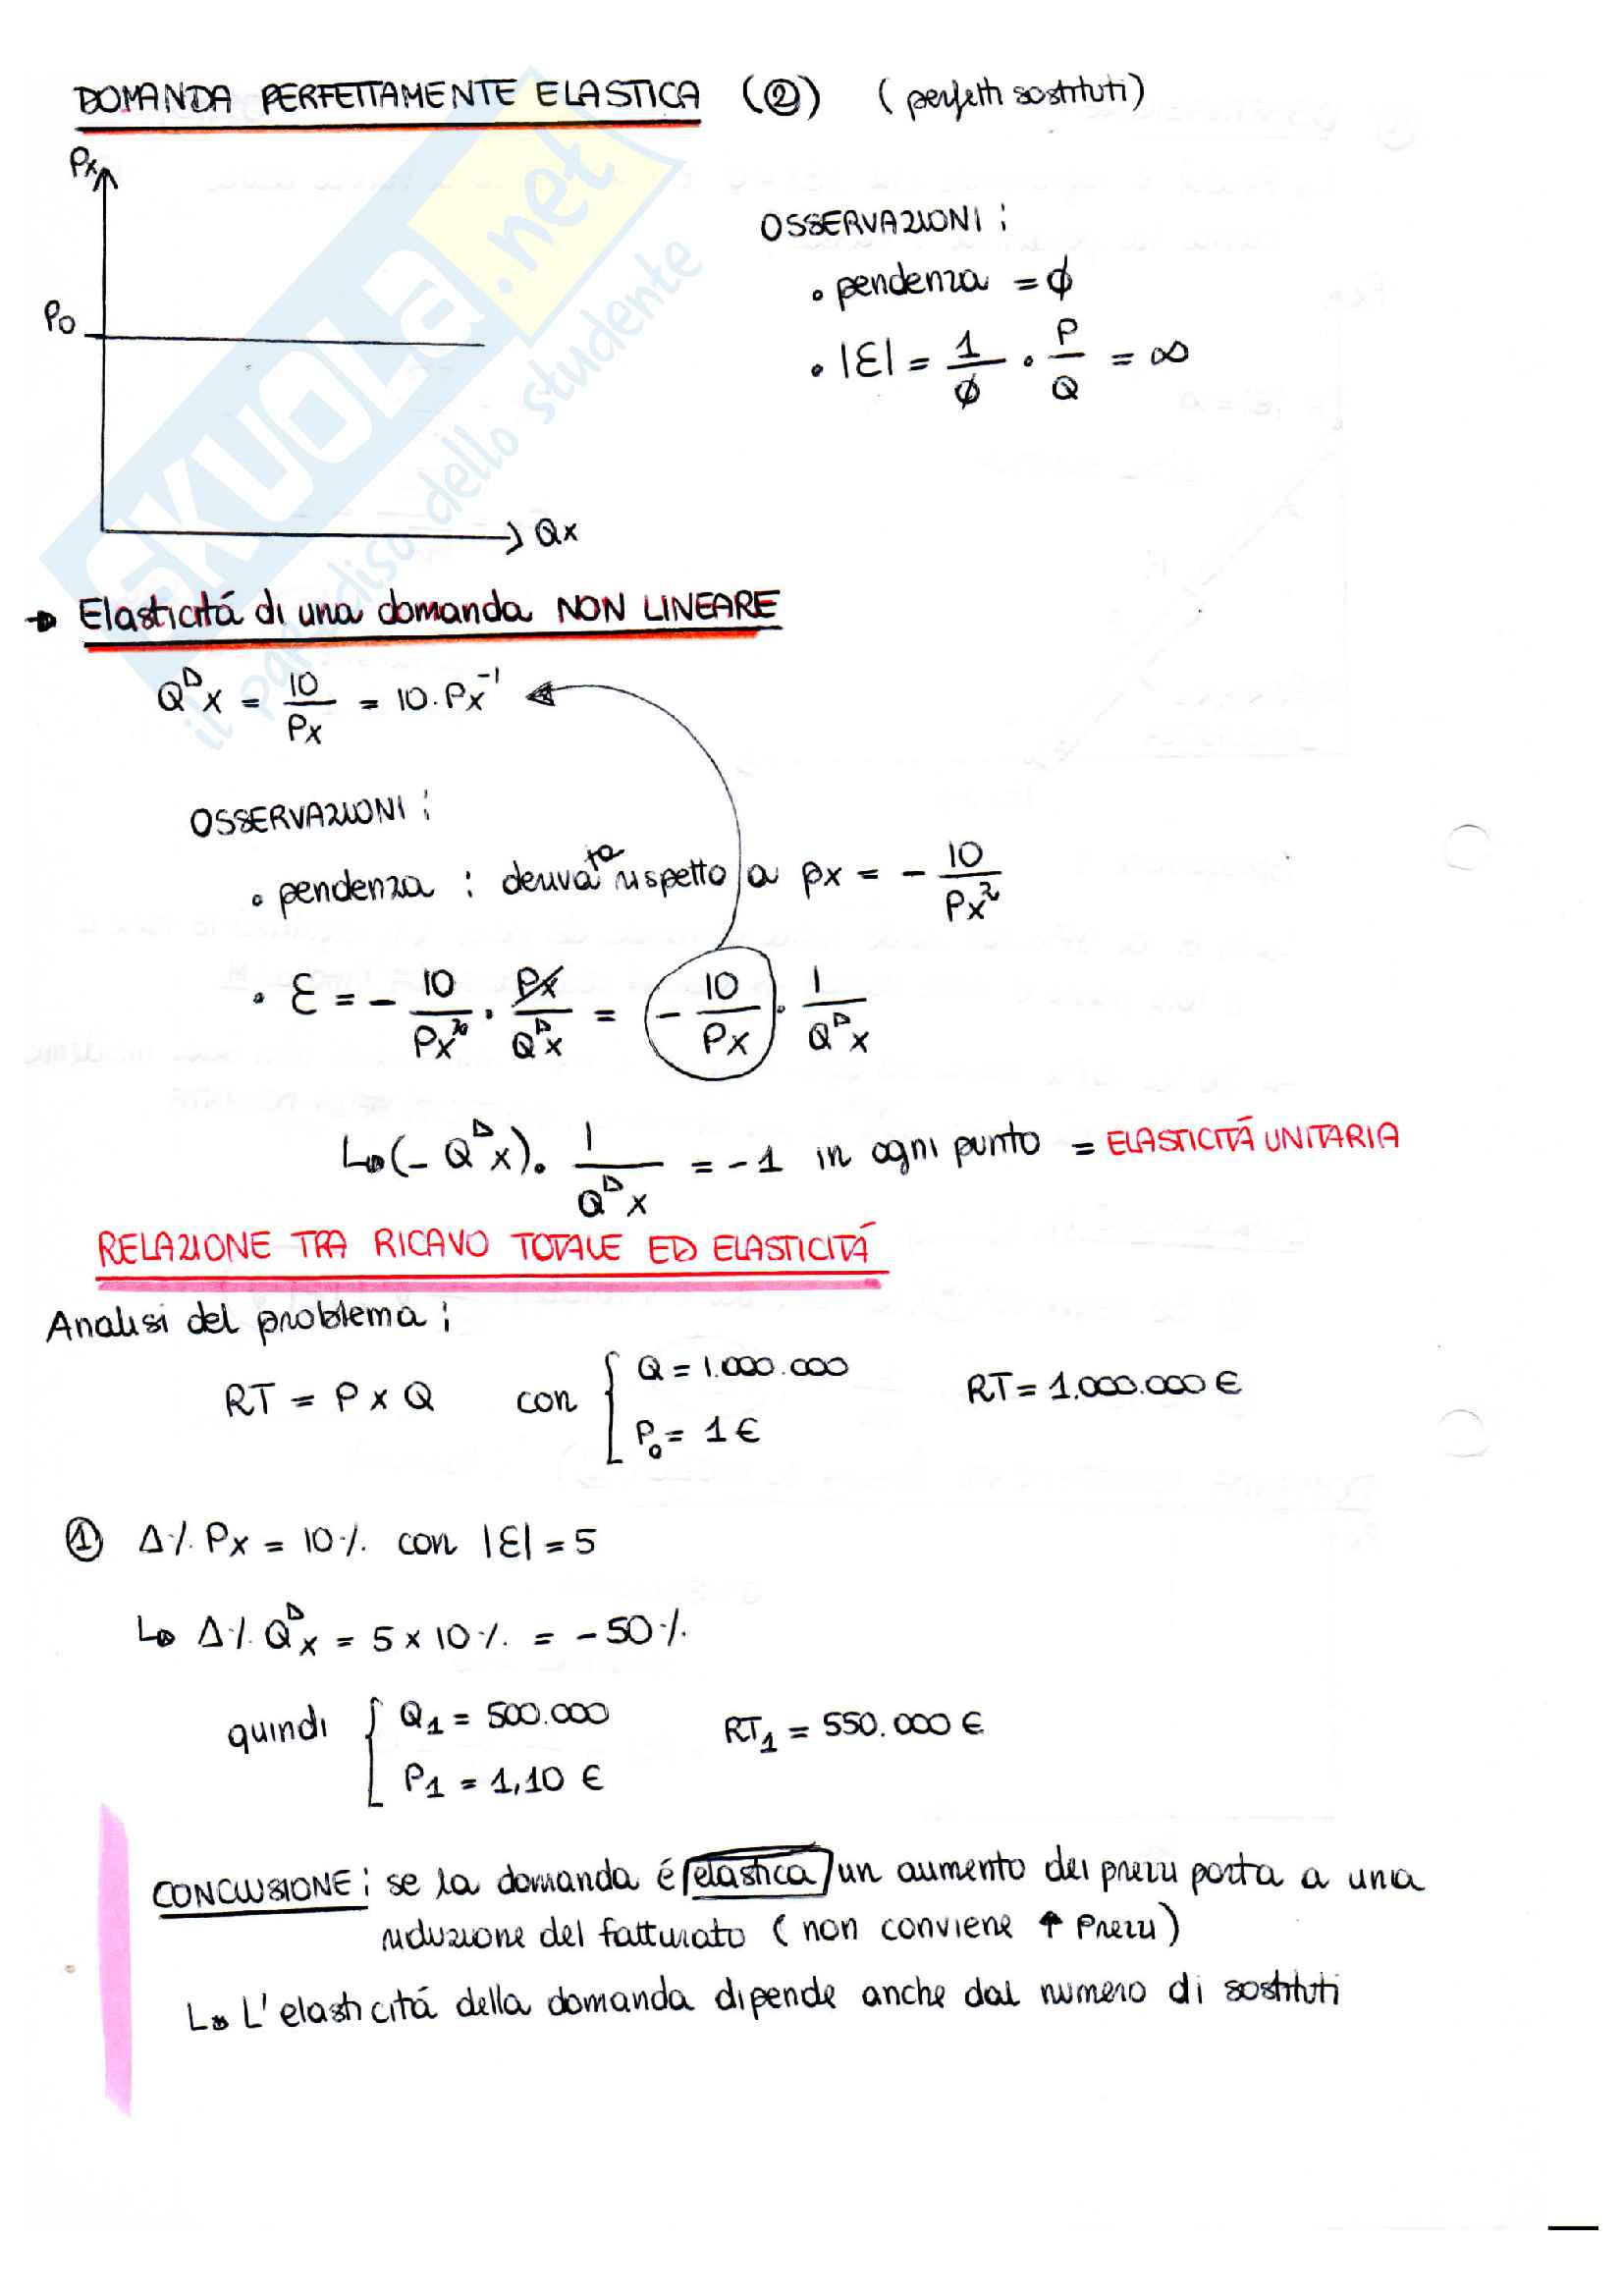 DOMANDA PERFETTAMENTE ELASTICA (②) (perfetti sostituti)
Px
OSSERVAZIONI:
• pendenza = ϕ
P0
• |Ɛ| = 1/ϕ · P/Q = ∞
Qx
→ Elasticitá di una domanda NON LINEARE
Q^D x = 10/Px = 10·Px^-1
OSSERVAZIONI:
• pendenza : derivata rispetto a px = - 10/Px^2
• Ɛ = - 10/Px^2 · Px/Q^D x = - 10/Px · 1/Q^D x
↳ (- Q^D x) · 1/Q^D x = -1 in ogni punto = ELASTICITÁ UNITARIA
RELAZIONE TRA RICAVO TOTALE ED ELASTICITÁ
Analisi del problema:
RT = P x Q con { Q = 1.000.000 RT = 1.000.000 €
P0 = 1 €
① Δ% Px = 10% con |Ɛ| = 5
↳ Δ% Q^D x = 5 x 10% = -50%
quindi { Q1 = 500.000 RT1 = 550.000 €
P1 = 1,10 €
CONCLUSIONE: se la domanda é elastica un aumento dei prezzi porta a una
riduzione del fatturato (non conviene ↑ prezzi)
↳ L'elasticitá della domanda dipende anche dal numero di sostituti
SKUOLA.net
il paradiso dello studente